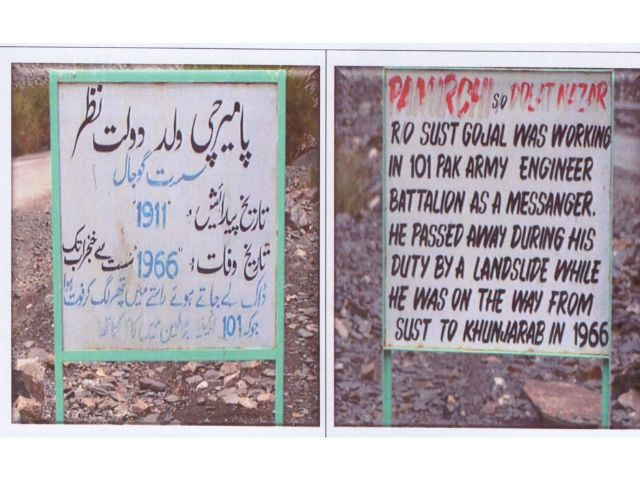 پامیرچی ولد دولت نظر
سست گوجال
تاریخ پیدائش: "1911"
تاریخ وفات: "1966" سست سے خنجراب تک
ڈاک لے جاتے ہوئے راستے میں پتھر لگ کر فوت ہوا
جوکہ 101 انجینئر بٹالین میں کام کرتا تھا
PAMIRCHI S/O DOLAT NAZAR
R/O SUST GOJAL WAS WORKING
IN 101 PAK ARMY ENGINEER
BATTALION AS A MESSANGER.
HE PASSED AWAY DURING HIS
DUTY BY A LANDSLIDE WHILE
HE WAS ON THE WAY FROM
SUST TO KHUNJARAB IN 1966